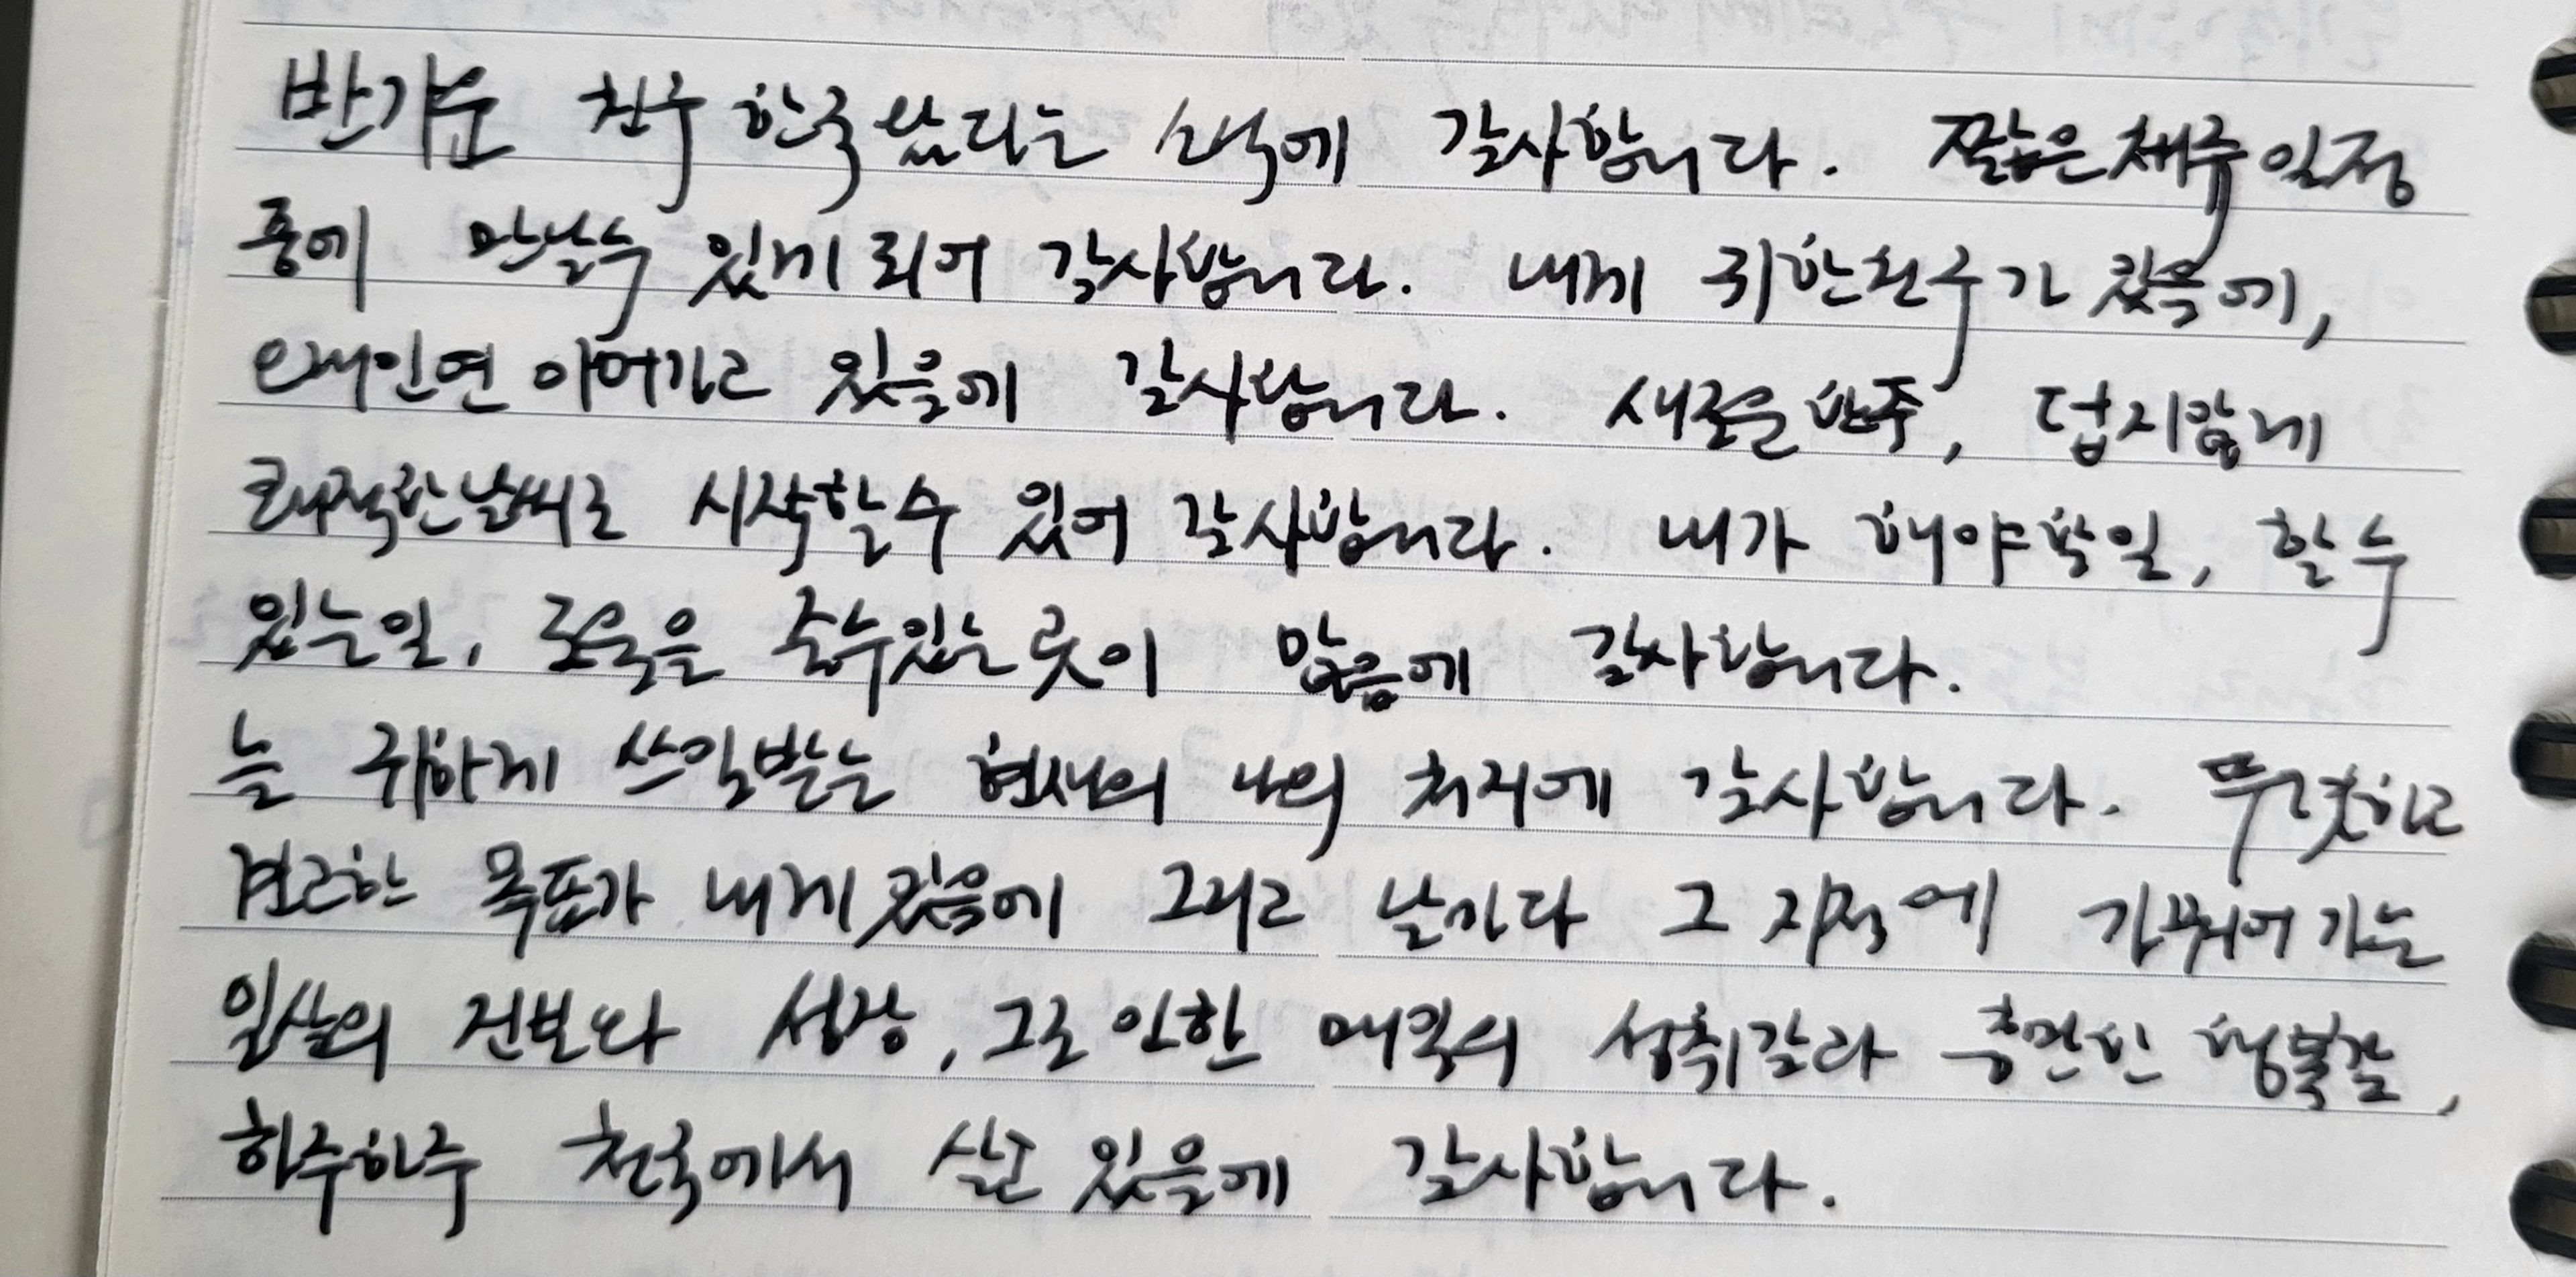 반가운 친구 한국 왔다는 소식에 감사합니다. 짧은 체류 일정
중에 만날수 있게 되어 감사합니다. 내게 귀한친구가 있음에,
오래인연 이어가고 있음에 감사합니다. 새로운 한주, 덥지않게
쾌적한날씨로 시작할 수 있어 감사합니다. 내가 해야할일, 할 수
있는일, 도움을 줄수있는 곳이 많음에 감사합니다.
늘 귀하게 쓰임받는 현재의 나의 처지에 감사합니다. 뚜렷하고
견고한 목표가 내게 있음에 그리고 날마다 그 지점에 가까워 가는
일상의 진보와 성장, 그로 인한 매일의 성취감과 충만한 행복감,
하루하루 천국에서 살고 있음에 감사합니다.